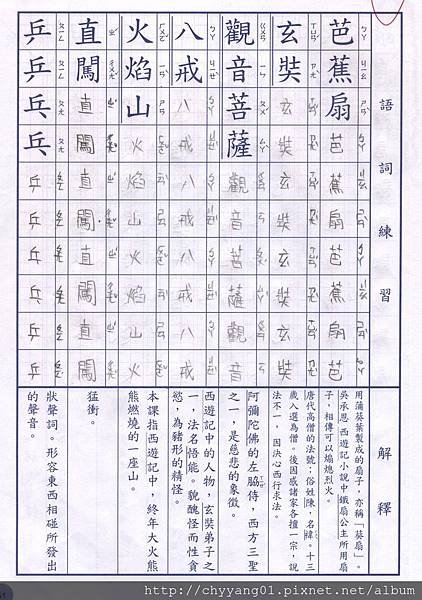 語詞練習
解釋
芭蕉扇芭蕉扇芭蕉扇芭
用蒲葵葉製成的扇子,亦稱「葵扇」。
吳承恩 西遊記小說中鐵扇公主所用扇
子,相傳可以煽熄烈火。
玄奘玄奘玄奘玄奘玄奘
唐代高僧的法號;俗姓陳,名禕。十三
歲入選為僧。後因感諸家各擅一宗,說
法不一,因決心西行求法。
觀音菩薩觀音菩薩觀音
阿彌陀佛的左脇侍,西方三聖
之一,是慈悲的象徵。
八戒八戒八戒八戒八戒
西遊記中的人物,玄奘弟子之
一,法名悟能。貌醜怪而性貪
慾,為豬形的精怪。
火焰山火焰山火焰山火
本課指西遊記中,終年大火熊
熊燃燒的一座山。
直闖直闖直闖直闖直闖
猛衝。
乒乒乓乓乒乒乓乓乒乒
狀聲詞。形容東西相碰所發出
的聲音。
http://chyyang01.pixnet.net/album